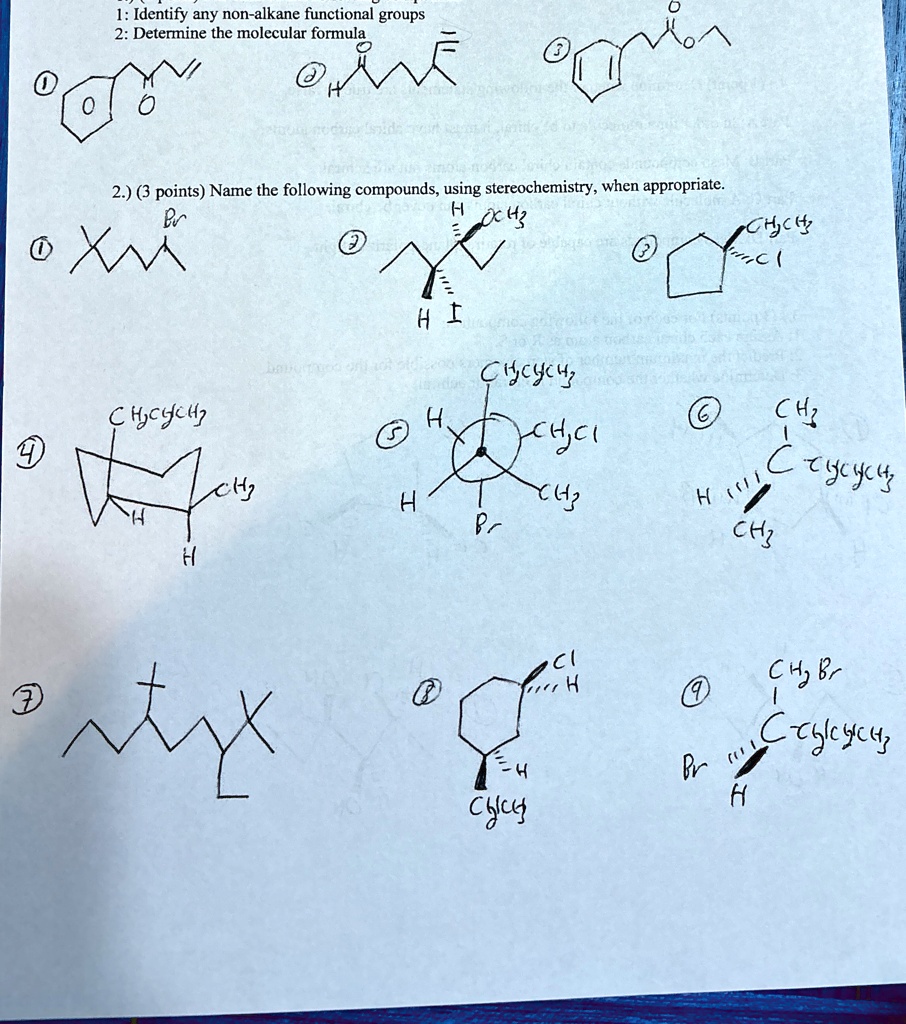 1: Identify any non-alkane functional groups
2: Determine the molecular formula
1 O O
2 O H
3 O O
2.) (3 points) Name the following compounds, using stereochemistry, when appropriate.
1 Br
2 H OCH3 H I
3 CH2CH3 Cl
4 CH2CH2CH3 H CH3 H
5 CH2CH2CH3 H CH2Cl H CH3 Br
6 CH3 C CH2CH2CH3 H CH3
7
8 Cl H H CH2CH3
9 CH2Br C CH2CH2CH3 Br H